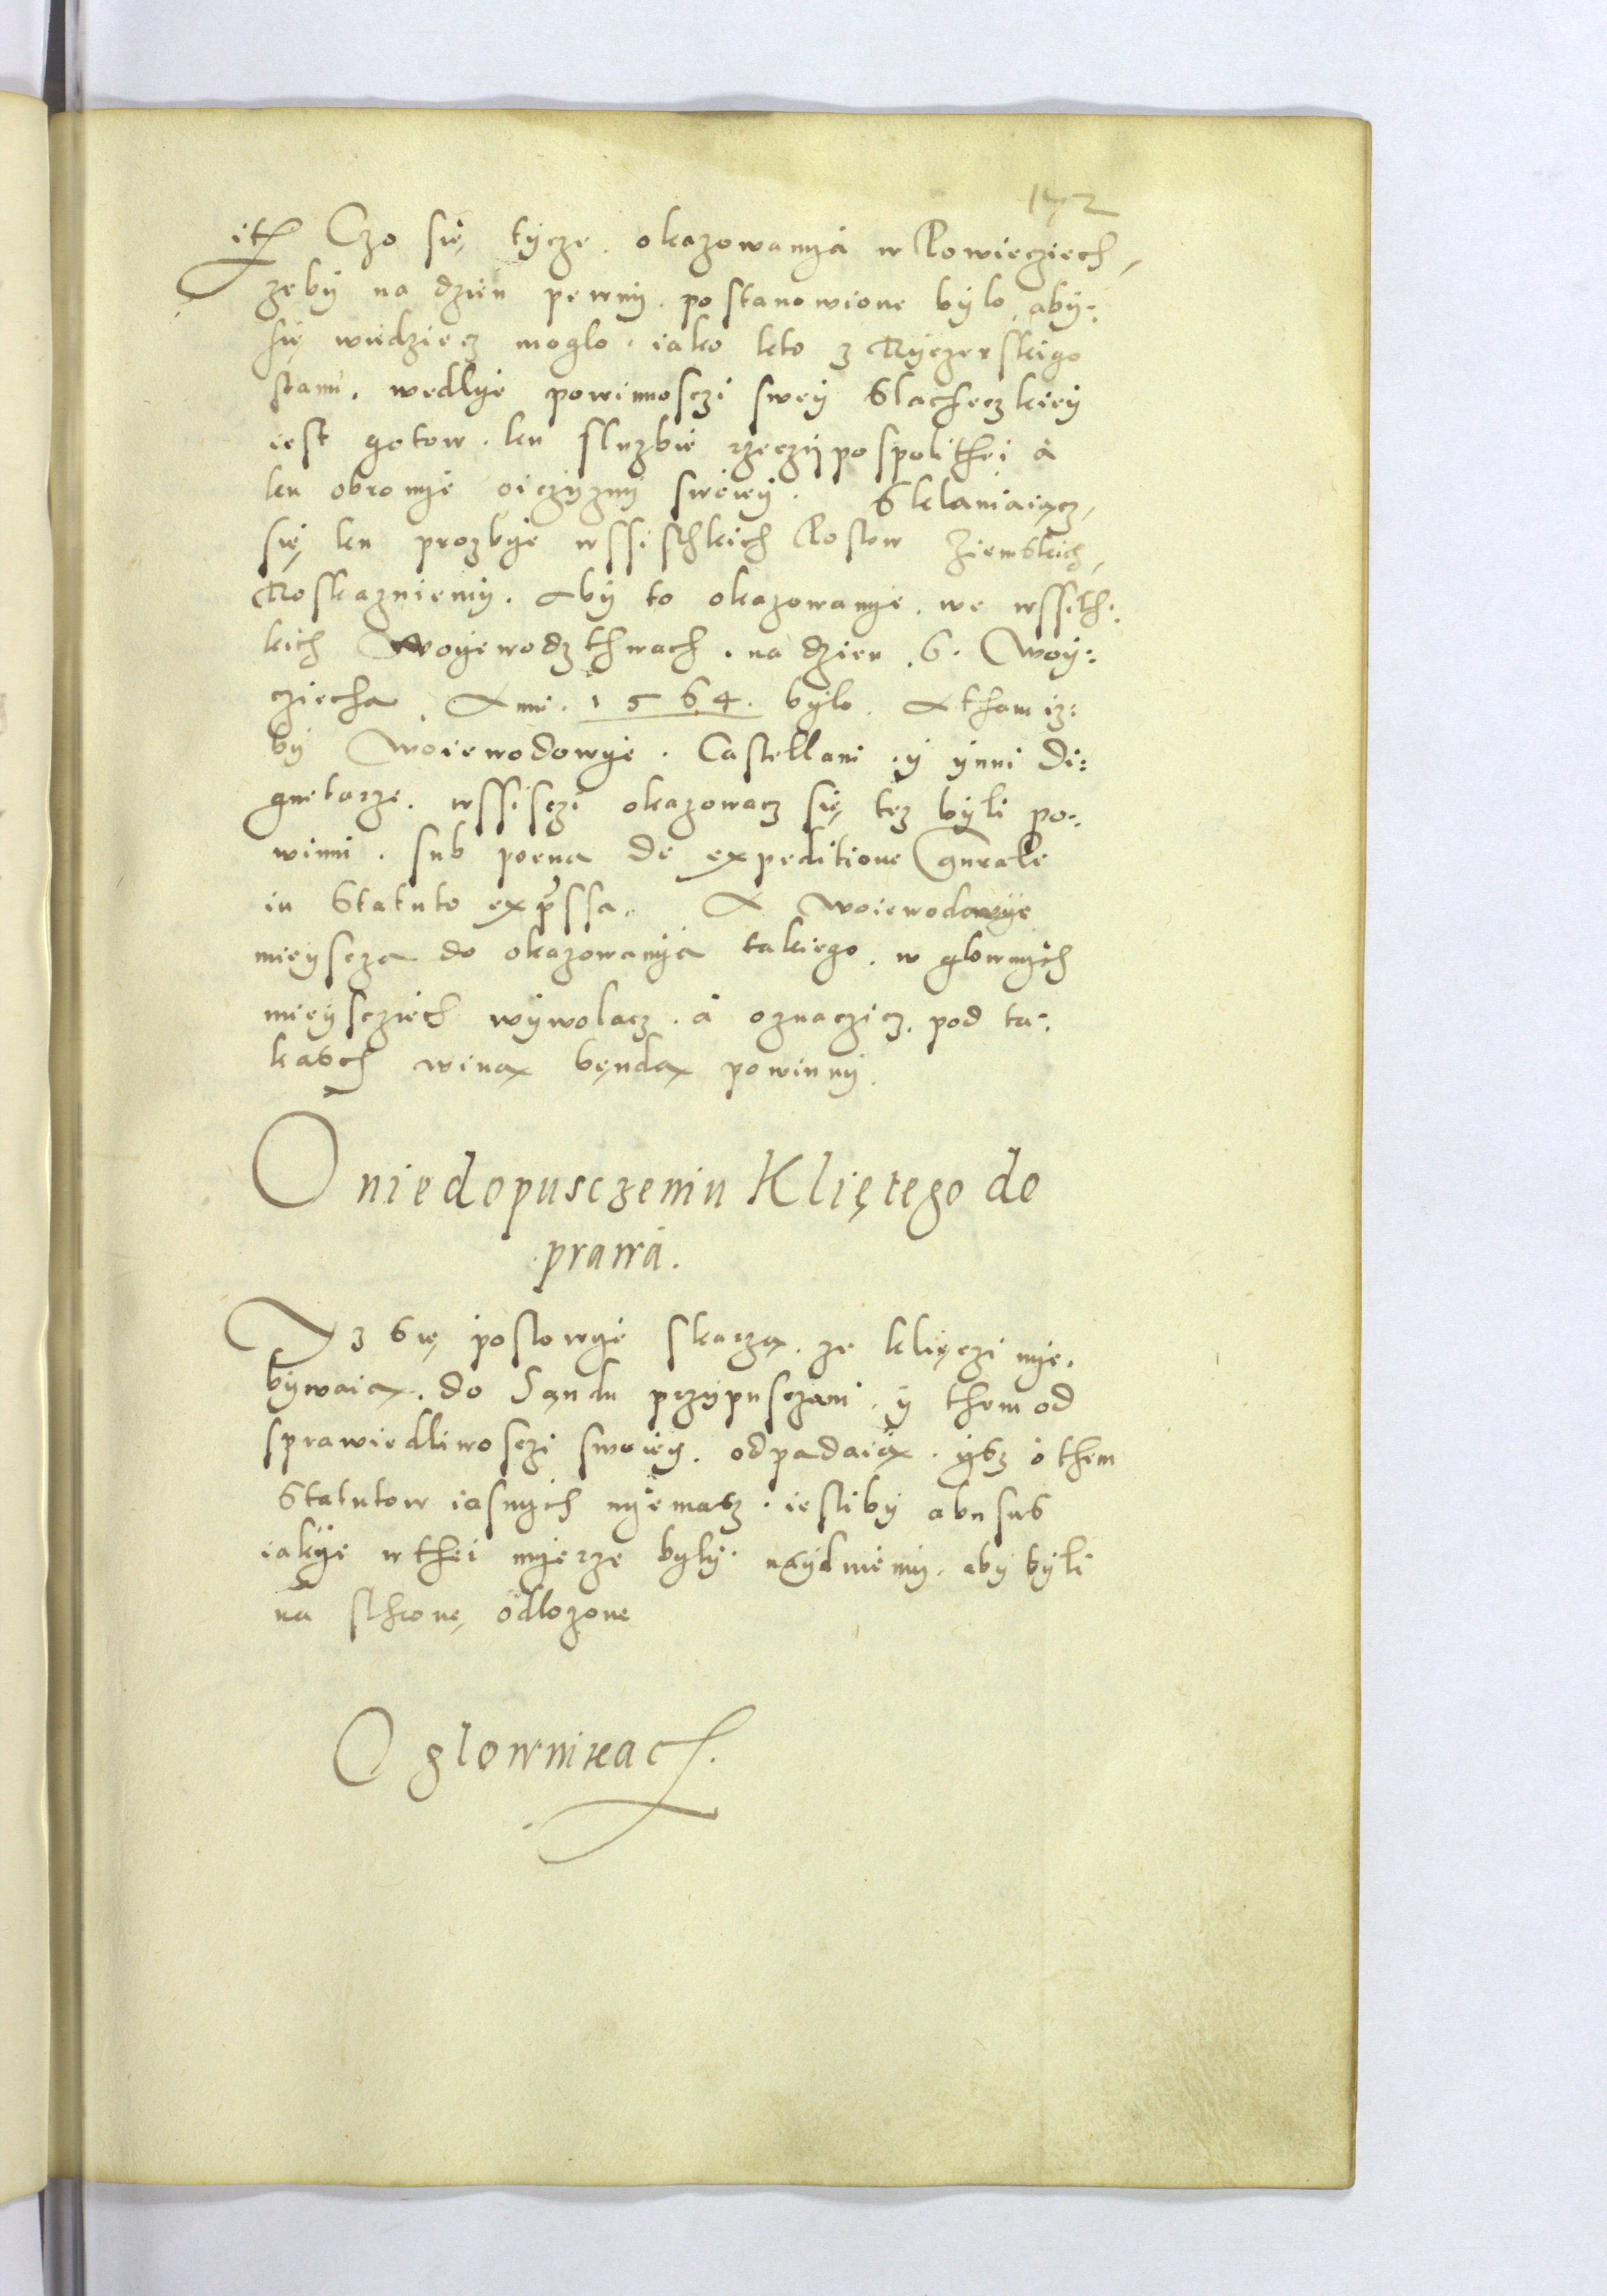 172
itē Czo się tycze okazowanyá w Powieciech,
żeby na dzień pewny postanowione bylo, aby:
się widziecz moglo. iako kto z Ryczerskiego
stanu. wedlye powinnosczi swey Slacheczkiey
iest gotow. ku sluzbie rzeczypospolithei á
ku obronye oiczyzny swoiey. Sklaniaiącz,
się ku prozbye wssischkich Poslow Ziemskich,
Roskazuiemy. Aby to okazowanye. we wssith:
kich Woyewodzthwach. na dzien .S. Woy:
cziecha Anni. 1564. bylo. A tham iz:
by Woiewodowye. Castellani .y ynni Di:
gnetarze. wssisczi okazowacz się tez byli po:
winni. sub poena de expeditione Gnrale
in Statuto exp̃ssa. A Woiewodowye
mieyscza do okazowanya takiego. w glownych
mieyscziech wywolacz. á oznaczicz. pod ta:
kąsch winą będą powinny.
O niedopusczeniu Klię tego do
prawá.
Yz Się poslowye skarzą. że klięczi nye.
bywaią. do Sądu przypusczani. y them od
sprawiedliwosczi swoiey. odpadaią. ysz o them
Statutow iasnych nyemasz. iestliby abusus
iakye w thei myerze byly. naydniemy. aby byli
ná sthronę odlozone
O glownikach.